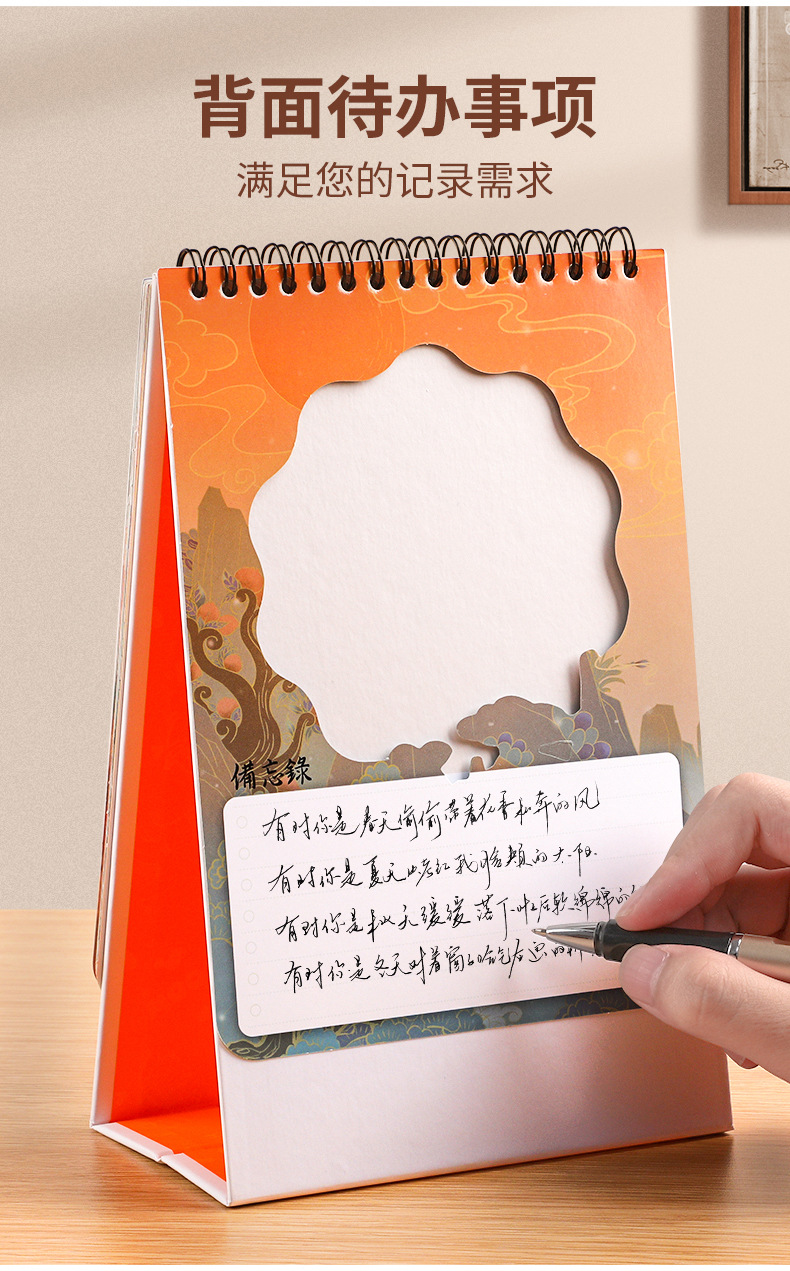 背面待办事项
满足您的记录需求
備忘錄
有时你是春天偷偷带着花香私奔的风
有时你是夏天山岩红我脸颊的太阳
有时你是秋天缓缓落下叶后软绵绵的
有时你是冬天对着窗